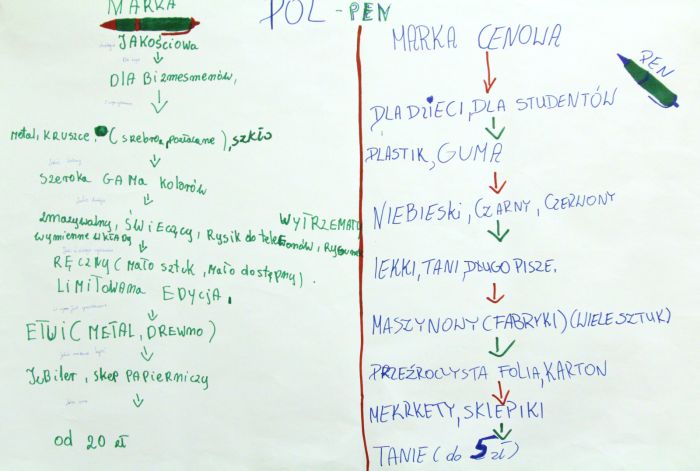 MARKA
POL - PEN
JAKOŚCIOWA
DLA BIZNESMENÓW,
METAL, KRUSZCE, (SREBRO, POZŁACANE), SZKŁO
SZEROKA GAMA KOLORÓW
ZMAZYWALNY, ŚWIECĄCY, RYSIK DO TELEFONÓW,
WYMIENNE WKŁADY
RĘCZNY (MAŁO SZTUK, MAŁO DOSTĘPNY).
LIMITOWANA EDYCJA.
ETUI (METAL, DREWNO)
JUBILER, SKLEP PAPIERNICZY
od 20 zł
MARKA CENOWA
PEN
DLA DZIECI, DLA STUDENTÓW
PLASTIK, GUMA
NIEBIESKI, CZARNY, CZERWONY
LEKKI, TANI, DŁUGO PISZE.
MASZYNOWY (FABRYKI) (WIELE SZTUK)
PRZEŹROCZYSTA FOLIA, KARTON
SKLEPIKI
TANIE (do 5 zł)